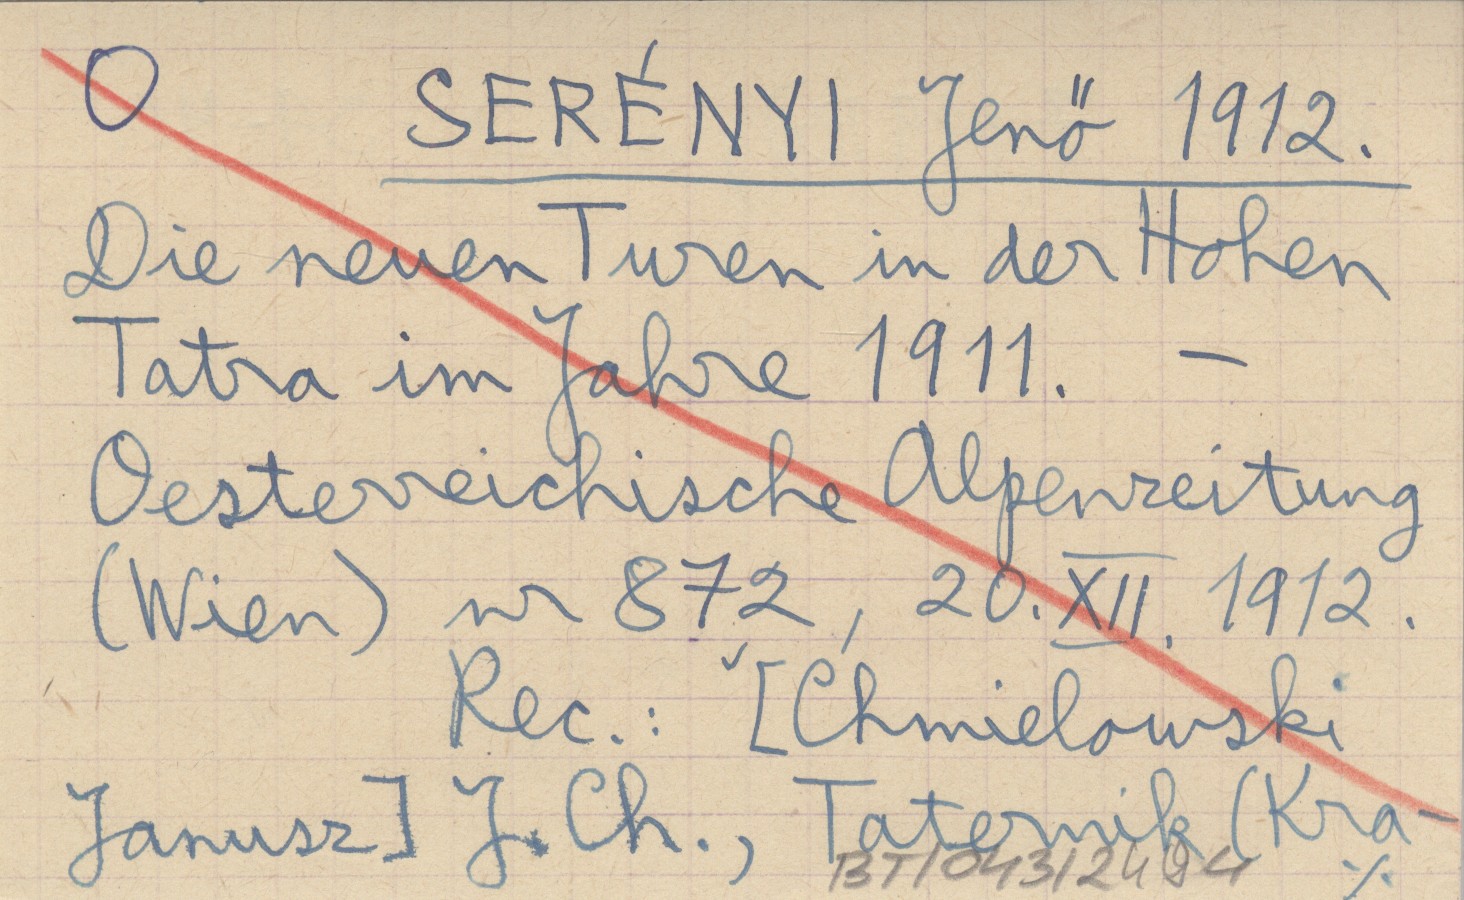 O SERÉNYI Jenő 1912.
Die neuen Turen in der Hohen
Tatra im Jahre 1911. –
Oesterreichische Alpenzeitung
(Wien) nr 872, 20.XII.1912.
Rec.: [Chmielowski
Janusz] J.Ch., Taternik (Kra-
BT/043/2494